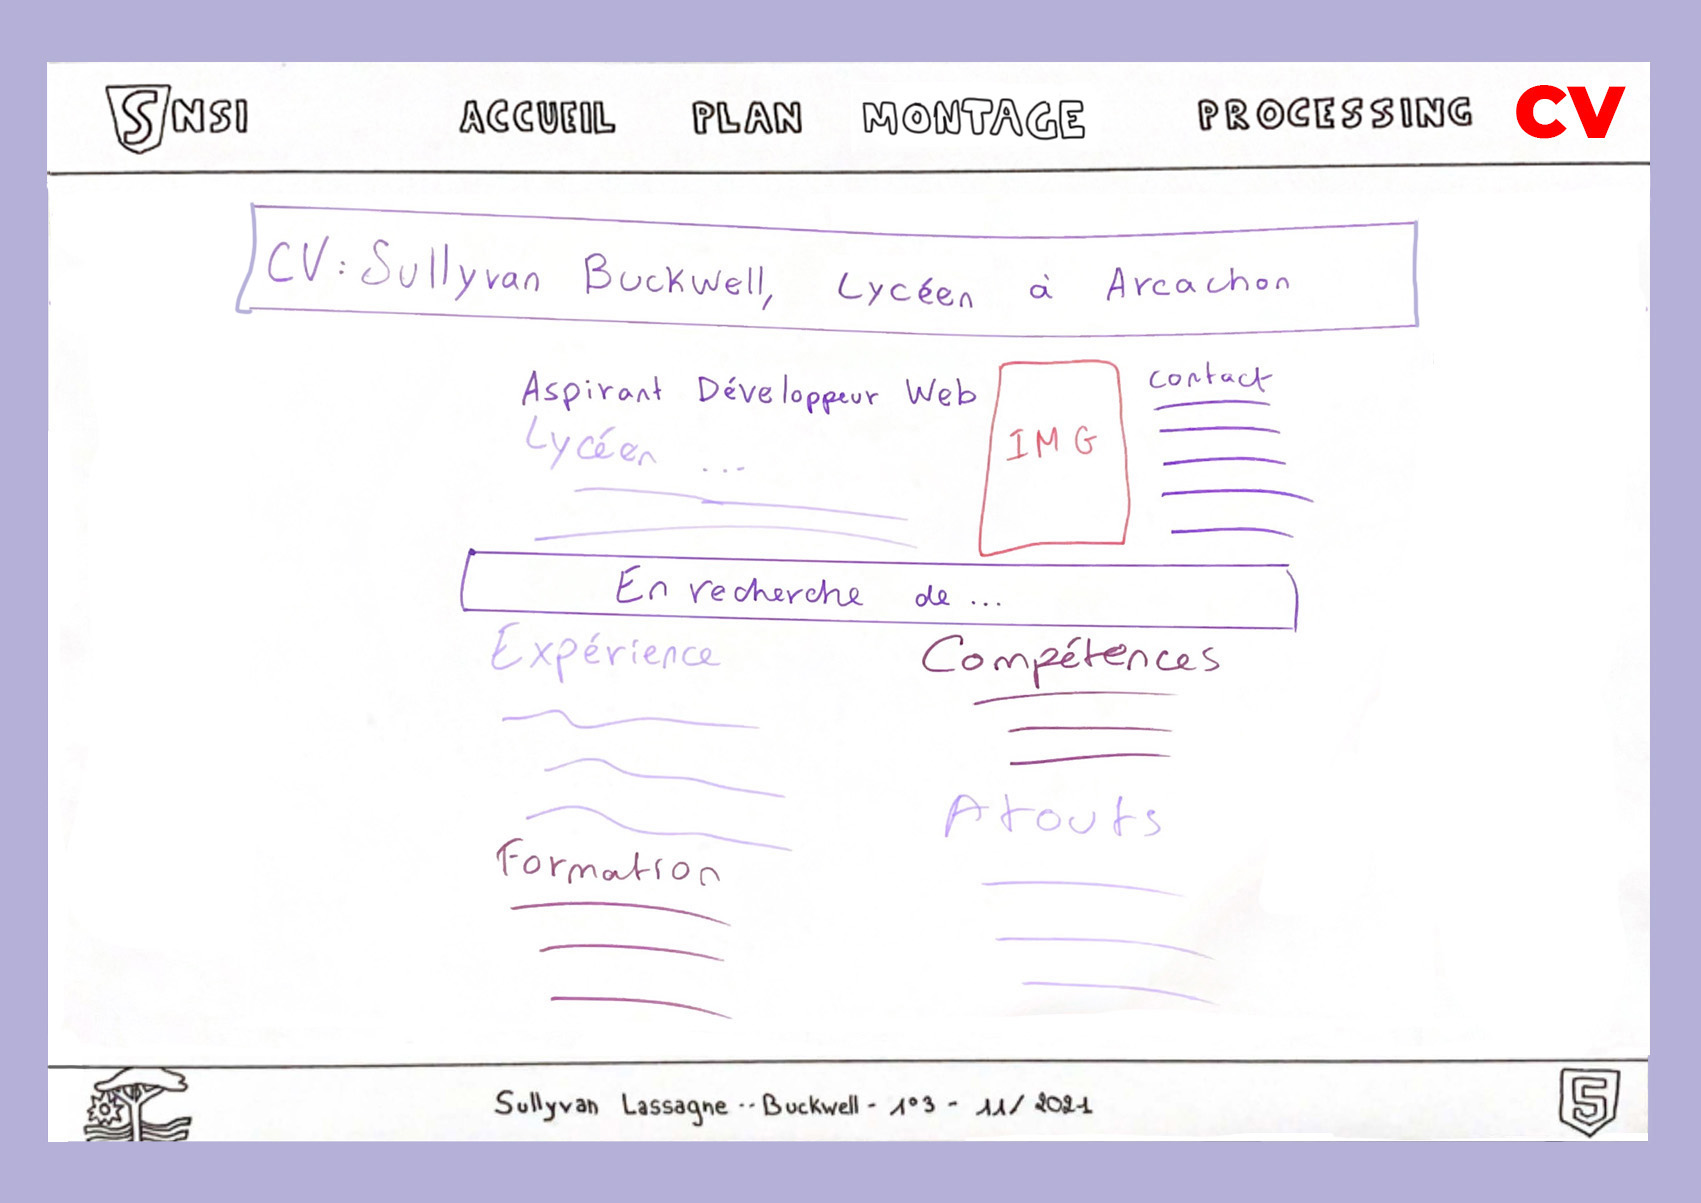 SNSI ACCUEIL PLAN MONTAGE PROCESSING CV
CV: Sullyvan Buckwell, Lycéen à Arcachon
Aspirant Développeur Web
Lycéen ...
IMG
contact
En recherche de ...
Expérience
Compétences
Atouts
Formation
Sullyvan Lassagne--Buckwell - 1°3 - 11/2021
5